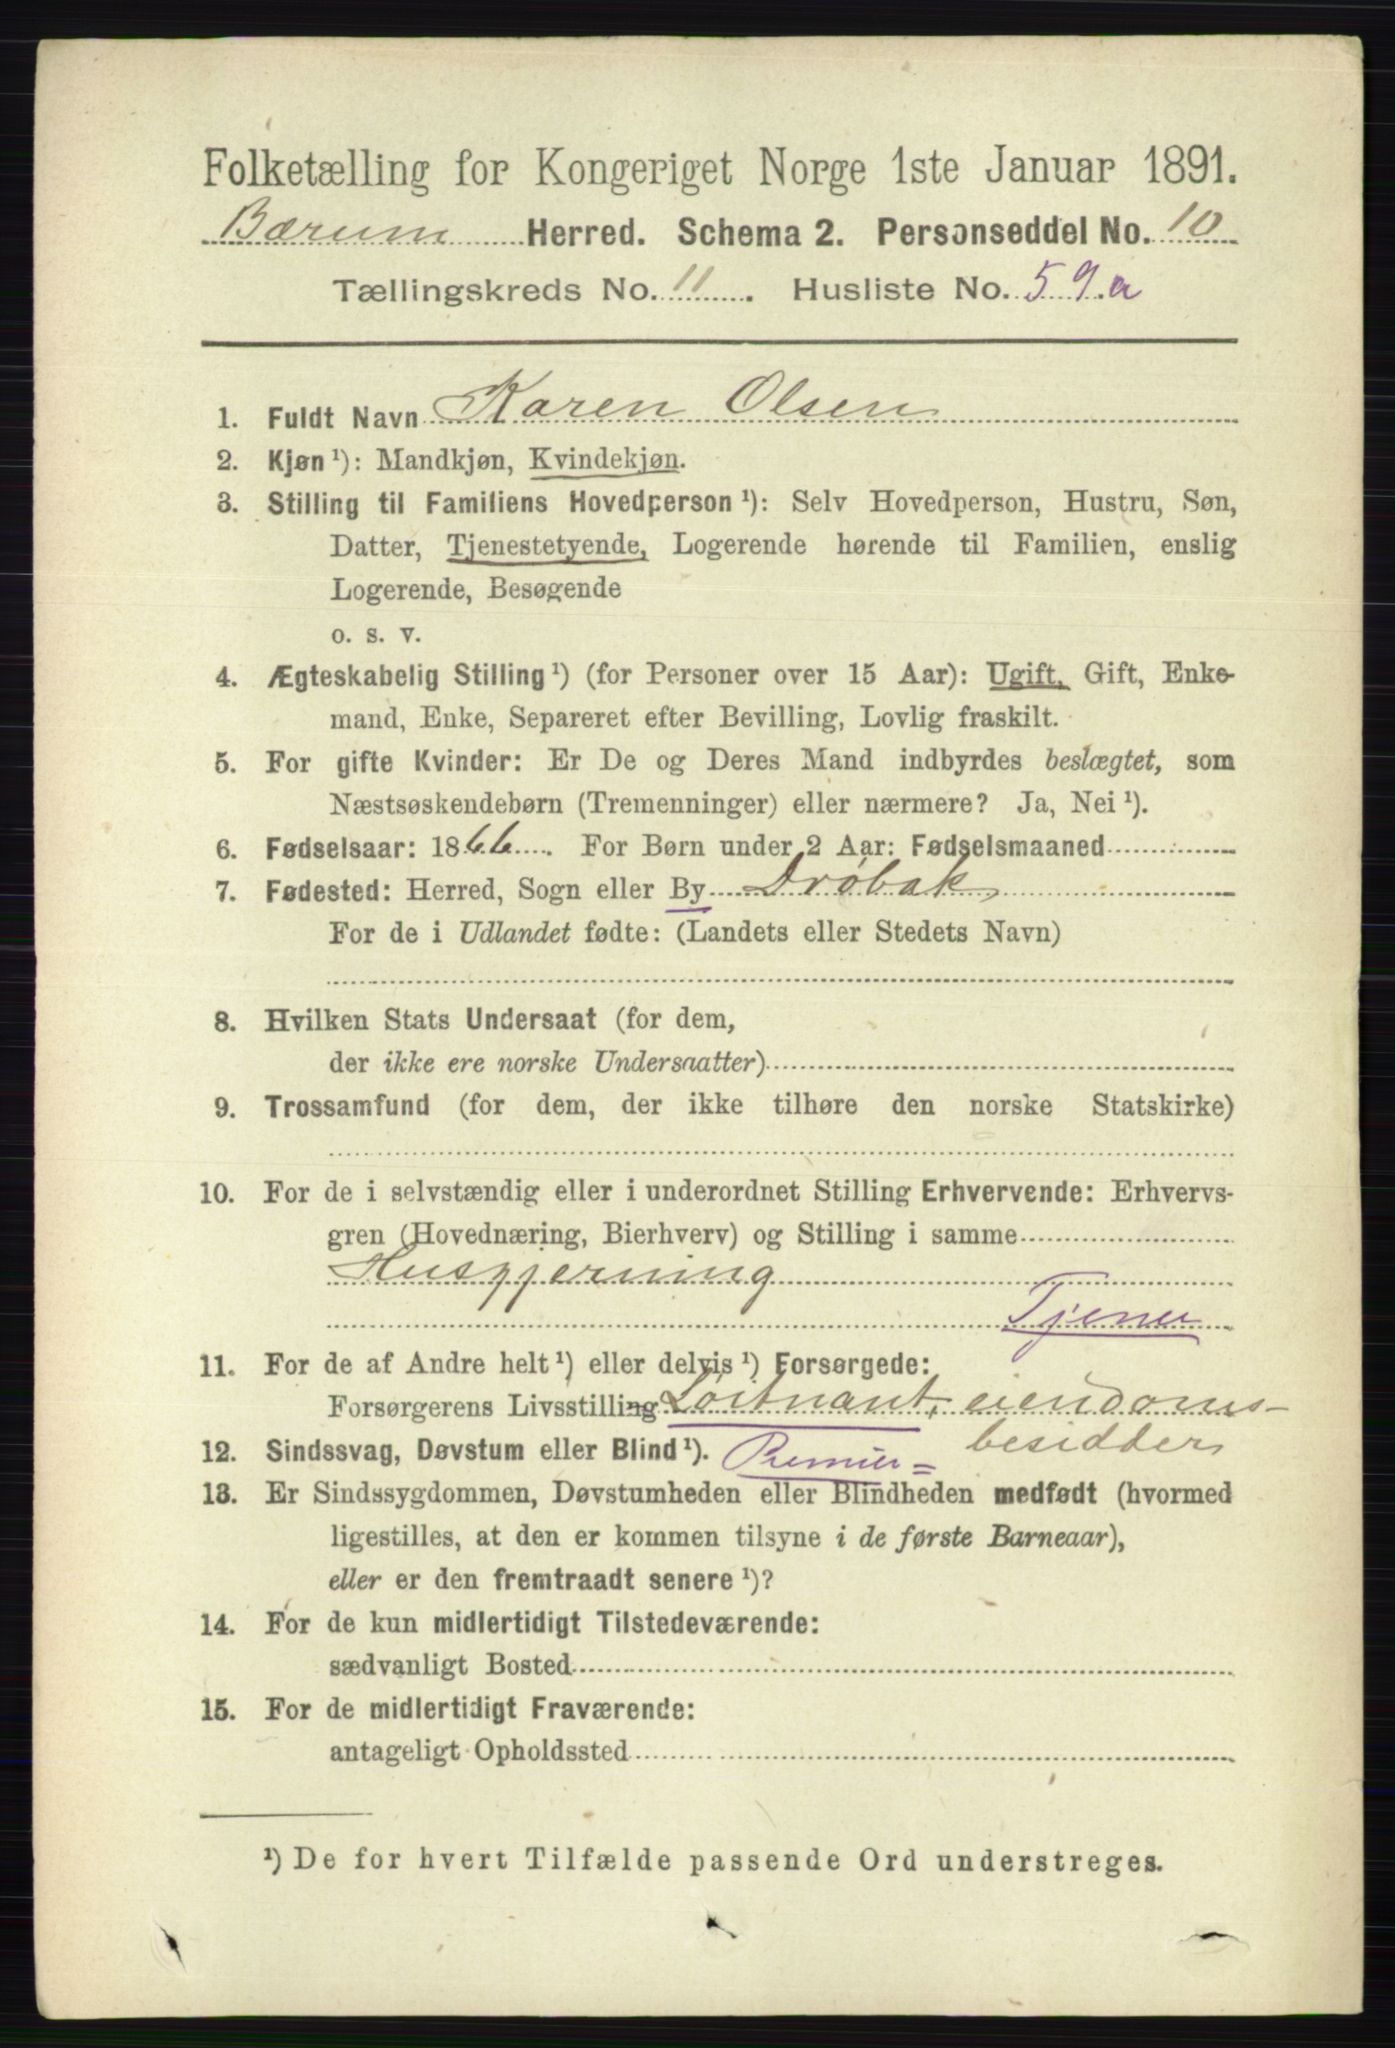 Folketælling for Kongeriget Norge 1ste Januar 1891.
Bærum Herred. Schema 2. Personseddel No. 10
Tællingskreds No. 11. Husliste No. 59.a
1. Fuldt Navn Karen Olsen
2. Kjøn ¹): Mandkjøn, Kvindekjøn.
3. Stilling til Familiens Hovedperson ¹): Selv Hovedperson, Hustru, Søn,
Datter, Tjenestetyende, Logerende hørende til Familien, enslig
Logerende, Besøgende
o. s. v.
4. Ægteskabelig Stilling ¹) (for Personer over 15 Aar): Ugift, Gift, Enke-
mand, Enke, Separeret efter Bevilling, Lovlig fraskilt.
5. For gifte Kvinder: Er De og Deres Mand indbyrdes beslægtet, som
Næstsøskendebørn (Tremenninger) eller nærmere? Ja, Nei ¹).
6. Fødselsaar: 1866. For Børn under 2 Aar: Fødselsmaaned
7. Fødested: Herred, Sogn eller By Drøbak
For de i Udlandet fødte: (Landets eller Stedets Navn)
8. Hvilken Stats Undersaat (for dem,
der ikke ere norske Undersaatter)
9. Trossamfund (for dem, der ikke tilhøre den norske Statskirke)
10. For de i selvstændig eller i underordnet Stilling Erhvervende: Erhvervs-
gren (Hovednæring, Bierhverv) og Stilling i samme
Husgjerning
Tjener
11. For de af Andre helt ¹) eller delvis ¹) Forsørgede:
Forsørgerens Livsstilling Löitnant, eiendoms-
besidder
12. Sindssvag, Døvstum eller Blind ¹). Premier=
13. Er Sindssygdommen, Døvstumheden eller Blindheden medfødt (hvormed
ligestilles, at den er kommen tilsyne i de første Barneaar),
eller er den fremtraadt senere ¹)?
14. For de kun midlertidigt Tilstedeværende:
sædvanligt Bosted
15. For de midlertidigt Fraværende:
antageligt Opholdssted
¹) De for hvert Tilfælde passende Ord understreges.